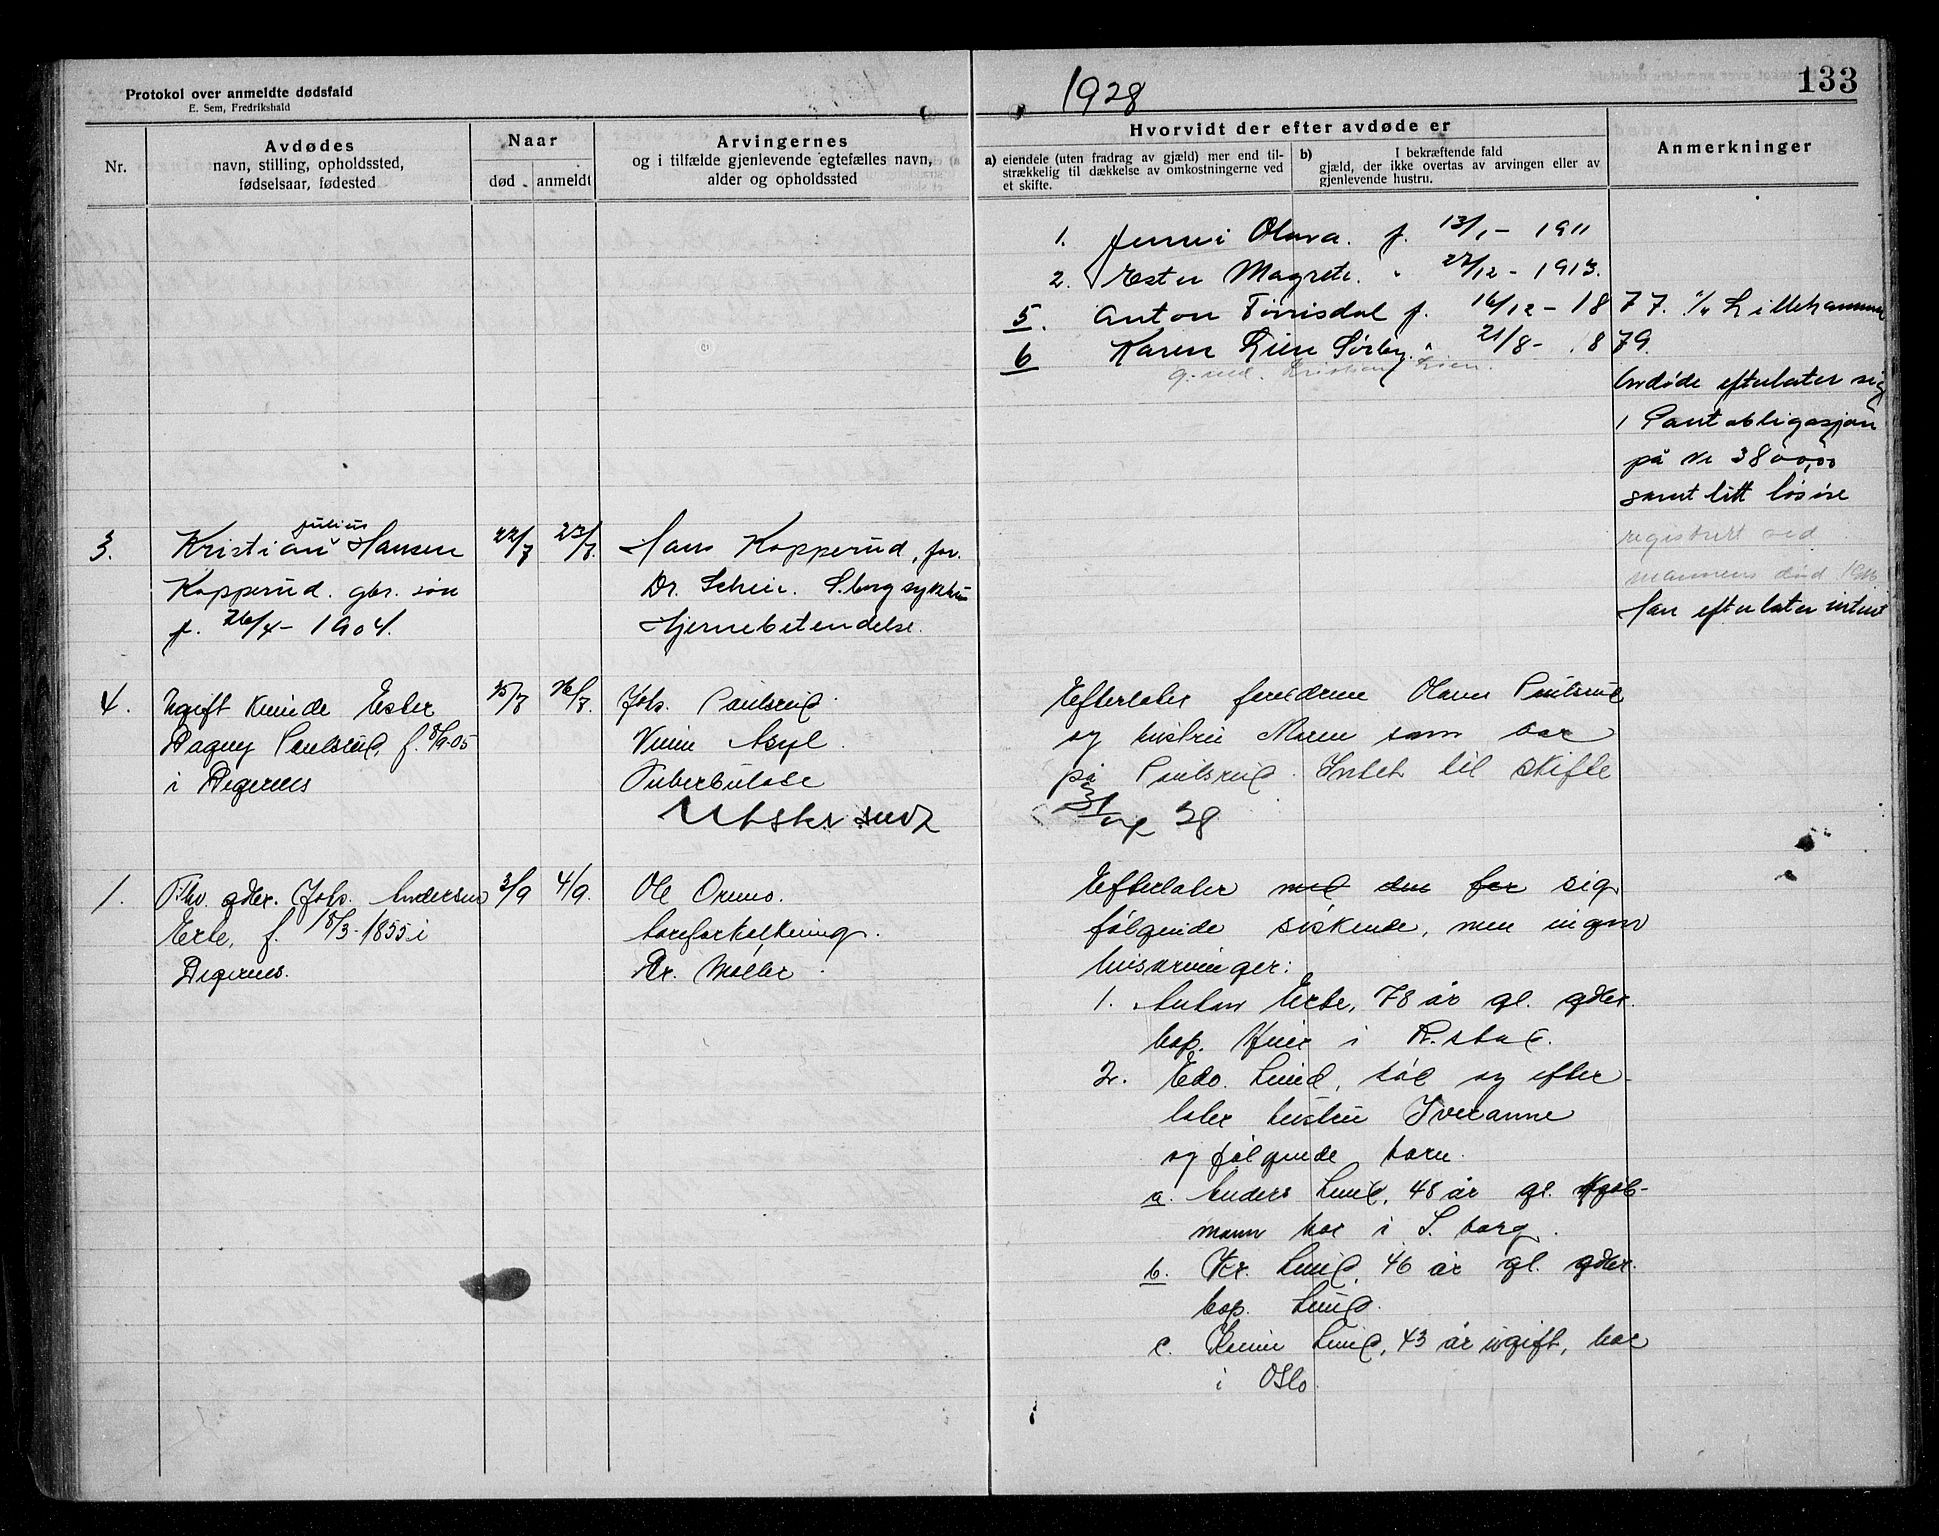 Protokol over anmeldte dødsfald
E. Sem, Fredrikshald
1928
133
Nr.
Avdødes
navn, stilling, opholdssted,
fødselsaar, fødested
Naar
død
anmeldt
Arvingernes
og i tilfælde gjenlevende egtefælles navn,
alder og opholdssted
Hvorvidt der efter avdøde er
a) eiendele (uten fradrag av gjæld) mer end til-
strækkelig til dækkelse av omkostningerne ved
et skifte.
b) I bekræftende fald
gjæld, der ikke overtas av arvingen eller av
gjenlevende hustru.
Anmerkninger
1. Jenni Olava. f. 13/1 - 1911
2. Ester Magrete. " 27/12 - 1913.
5. Anton Torrisdal f. 16/12 - 1877. Lillehammer
6 Karen Lien Sørby. " 21/8 - 1879.
g. med. Kristian Lien.
Avdøde efterlater sig
1 Pantobligasjon
på kr 3800,00
samt litt løsøre
registrert ved
mannens død
Han efterlater intet
3.
Kristian Julius Hansen
Kopperud. gbr. søn
f. 26/4 - 1904.
22/7
23/7.
Hans Kopperud, far.
Dr. Scheie. S.borg sykehus
Hjernebetendelse.
4.
Ugift kvinde Ester
Dagny Paulsrud, f. 8/9-05
i Degernes
25/7
26/7.
Johs. Paulsrud
Vium Asyl.
Tuberkulose
Utskr. send
Efterlater foreldrene Olaus Paulsrud
og hustru Maren som bor
på Paulsrud. Intet til skifte
1.
Fhv. gdbr. Johs. Andersen
Erte, f. 18/3-1855 i
Degernes.
3/9
4/9.
Ole Oraas.
Åreforkalkning.
Dr. Møller.
Efterlater med den for sig
følgende søskende, men ingen
livsarvinger:
1. Anton Erte, 78 år gl. gdbr.
bop. Heier i R.stad.
2. Edv. Lund, død og efter-
later hustru Iveranne
og følgende barn.
a. Anders Lund, 48 år gl. Kjøb-
mann bor i S.borg.
b. Kr. Lund, 46 år gl. gdbr.
bop. Lund.
c. Lund, 43 år ugift, bor
i Oslo.